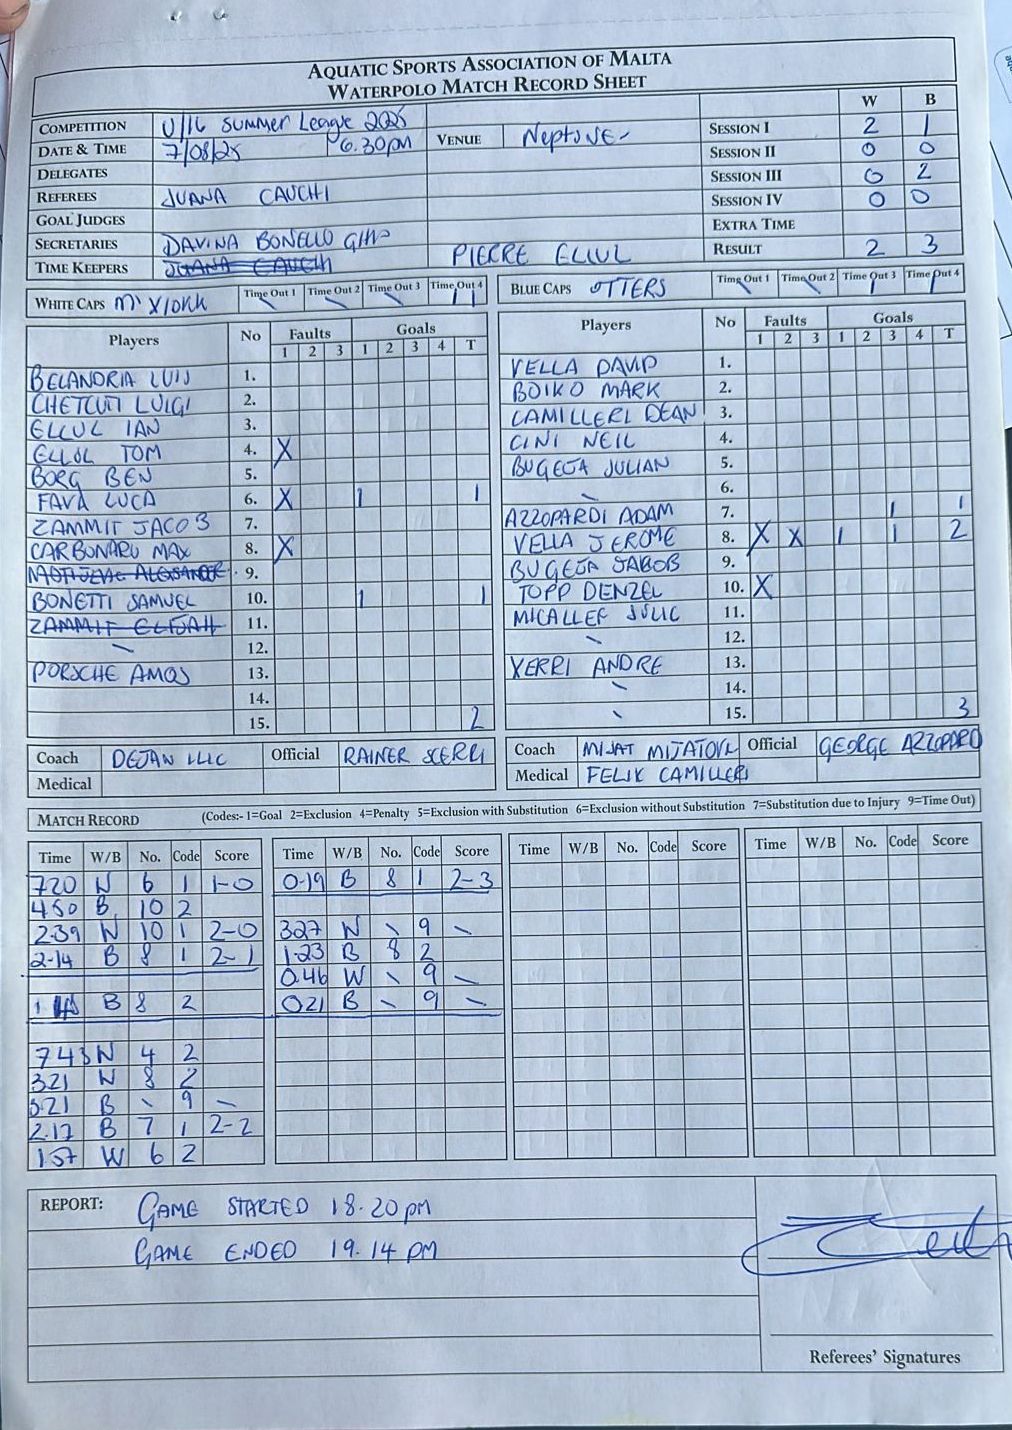 AQUATIC SPORTS ASSOCIATION OF MALTA
WATERPOLO MATCH RECORD SHEET
W B
COMPETITION U/16 SUMMER LEAGUE 2025 SESSION I 2 1
DATE & TIME 7/08/25 6.30pm VENUE Neptunes SESSION II 0 0
DELEGATES SESSION III 0 2
REFEREES JUANA CAUCHI SESSION IV 0 0
GOAL JUDGES EXTRA TIME
SECRETARIES DAVINA BONELLO PIERRE ELLUL RESULT 2 3
TIME KEEPERS JUANA CAUCHI
WHITE CAPS M'XLOKK Time Out 1 Time Out 2 Time Out 3 Time Out 4
BLUE CAPS OTTERS Time Out 1 Time Out 2 Time Out 3 Time Out 4
Players No Faults Goals
1 2 3 1 2 3 4 T
BELANDRIA LUIS 1.
CHETCUTI LUIGI 2.
ELLUL IAN 3.
ELLUL TOM 4. X
BORG BEN 5.
FAVA LUCA 6. X 1 1
ZAMMIT JACOB 7.
CARBONARO MAX 8. X
9.
BONETTI SAMUEL 10. 1 1
ZAMMIT ELIJAH 11.
12.
PORSCHE AMOS 13.
14.
15. 2
Players No Faults Goals
1 2 3 1 2 3 4 T
VELLA DAVID 1.
BOIKO MARK 2.
CAMILLERI DEAN 3.
CINI NEIL 4.
BUGEJA JULIAN 5.
\ 6.
AZZOPARDI ADAM 7. 1 1
VELLA JEROME 8. X X 1 1 2
BUGEJA JACOB 9.
TOPP DENZEL 10. X
MICALLEF 11.
\ 12.
XERRI ANDRE 13.
\ 14.
\ 15. 3
Coach DEJAN ILIC Official RAINER SCERRI
Medical
Coach MIJAT Official GEORGE AZZOPARD
Medical FELIX CAMILLERI
MATCH RECORD (Codes:- 1=Goal 2=Exclusion 4=Penalty 5=Exclusion with Substitution 6=Exclusion without Substitution 7=Substitution due to Injury 9=Time Out)
Time W/B No. Code Score
720 W 6 1 1-0
450 B 10 2
2.39 W 10 1 2-0
2-14 B 8 1 2-1
B 8 2
743 W 4 2
321 W 8 2
B \ 9 -
2.17 B 7 1 2-2
157 W 6 2
Time W/B No. Code Score
0-19 B 8 1 2-3
327 W \ 9 -
1.23 B 8 2
0.46 W \ 9 -
021 B \ 9 -
Time W/B No. Code Score
Time W/B No. Code Score
REPORT: GAME STARTED 18.20 pm
GAME ENDED 19.14 PM
Referees' Signatures